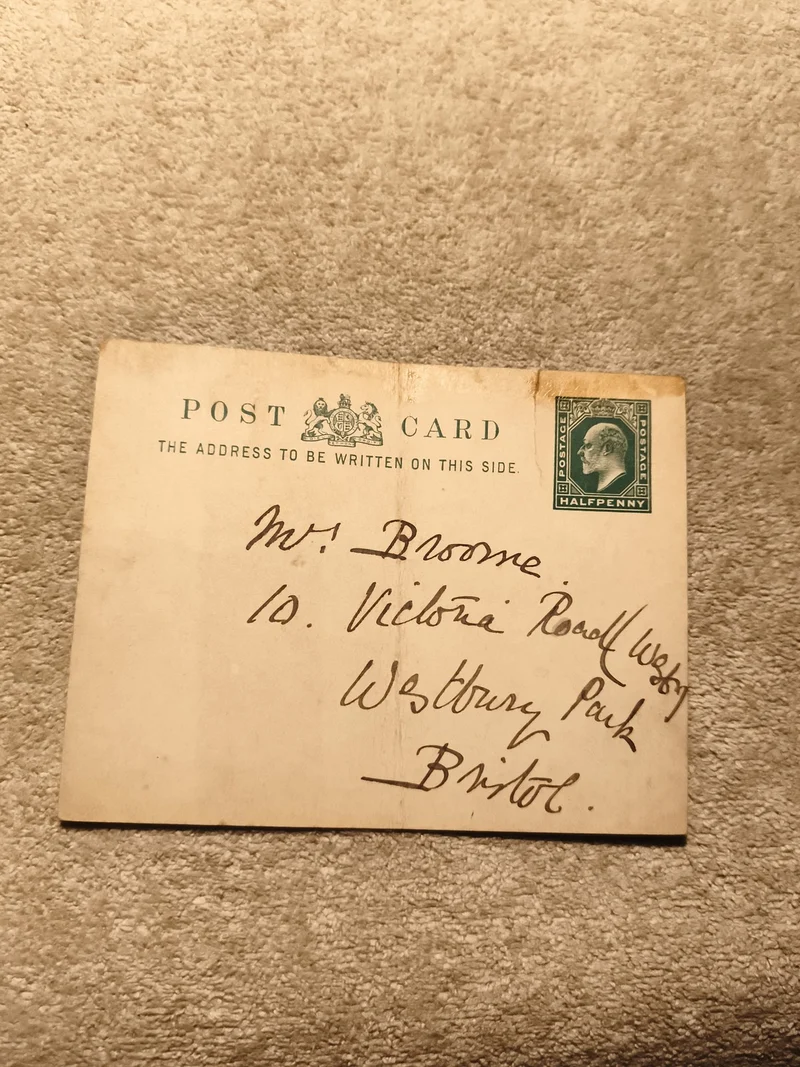 POST CARD
THE ADDRESS TO BE WRITTEN ON THIS SIDE.
POSTAGE POSTAGE
HALFPENNY
Mrs Broome.
10. Victoria Road
Westbury Park
Bristol.